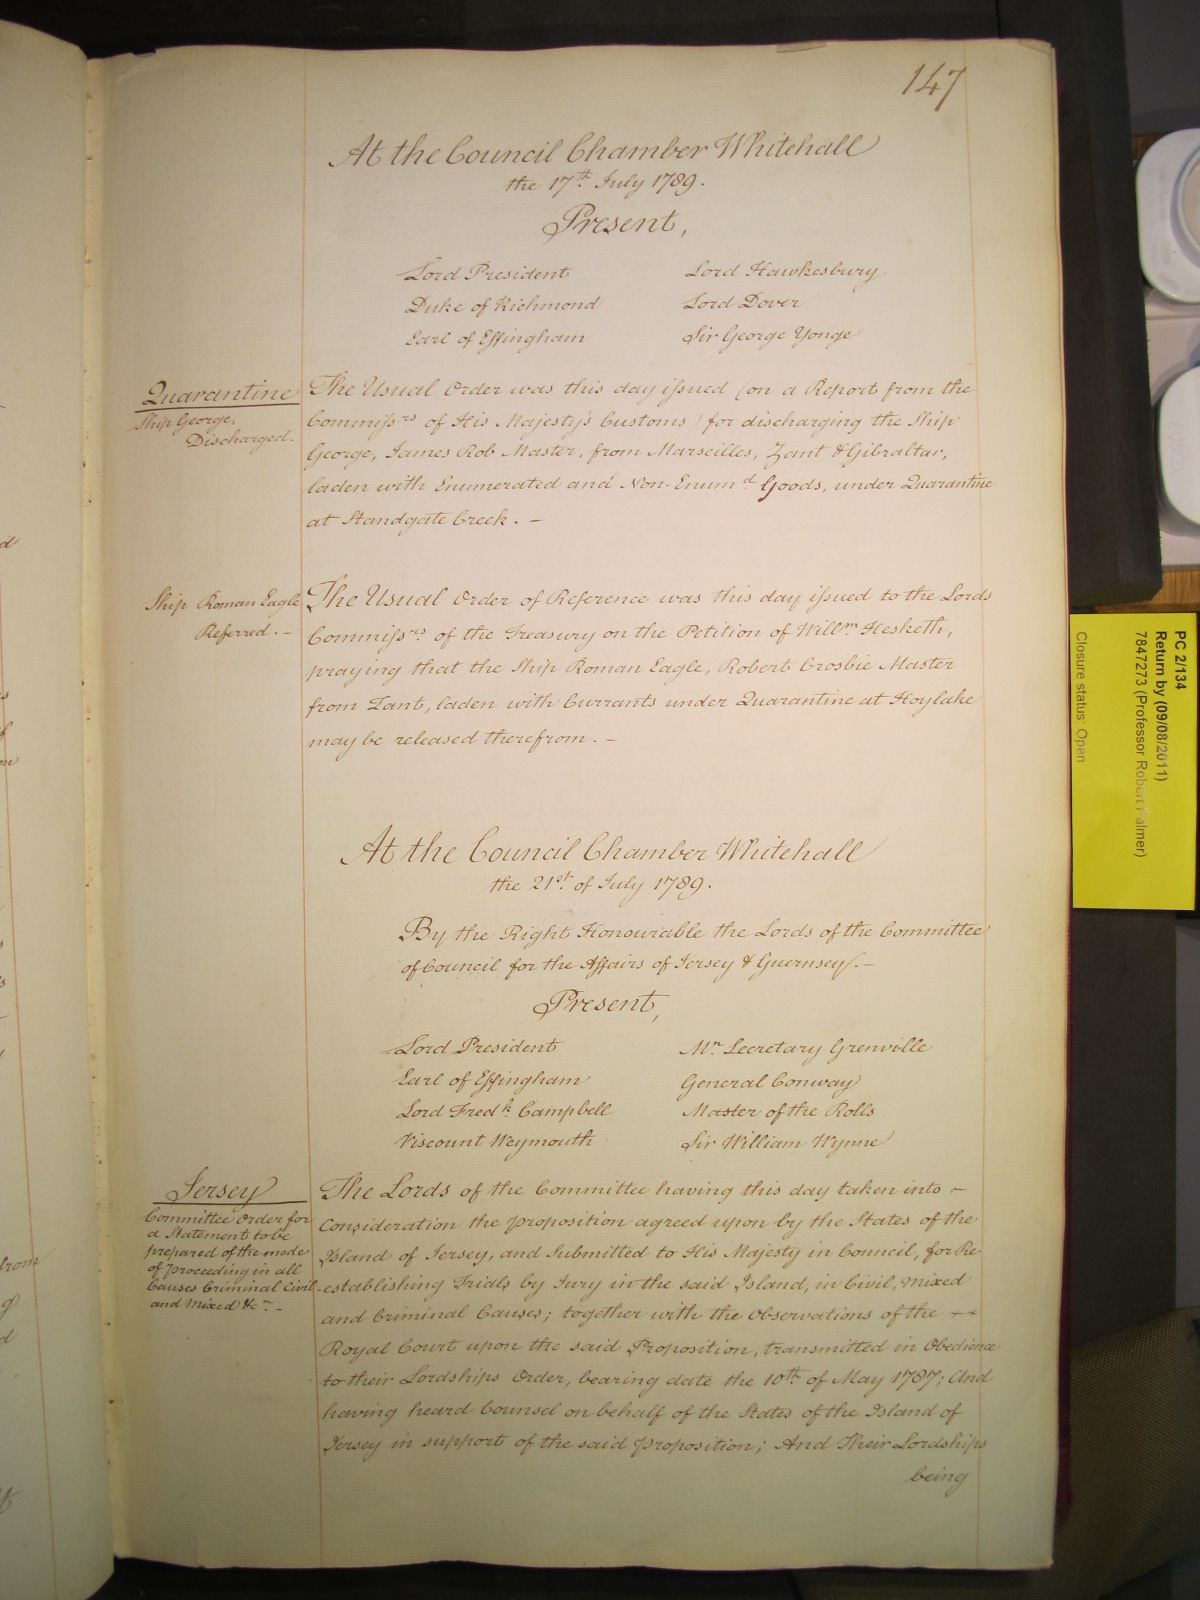 147
At the Council Chamber Whitehall
the 17th July 1789.
Present,
Lord President
Lord Hawkesbury
Duke of Richmond
Lord Dover
Earl of Effingham
Sir George Yonge
Quarantine
Ship George,
Discharged.
The Usual Order was this day issued (on a Report from the
Commissrs of His Majesty's Customs) for discharging the Ship
George, James Rob Master, from Marseilles, Zant & Gibraltar,
laden with Enumerated and Non-Enumd Goods, under Quarantine
at Standgate Creek. —
Ship Roman Eagle
Referred. —
The Usual Order of Reference was this day issued to the Lords
Commissrs of the Treasury on the Petition of Willm Hesketh,
praying that the Ship Roman Eagle, Robert Crosbie Master
from Zant, laden with Currants under Quarantine at Hoylake
may be released therefrom. —
At the Council Chamber Whitehall
the 21st of July 1789.
By the Right Honourable the Lords of the Committee
of Council for the Affairs of Jersey & Guernsey. —
Present,
Lord President
Mr Secretary Grenville
Earl of Effingham
General Conway
Lord Fredk Campbell
Master of the Rolls
Viscount Weymouth
Sir William Wynne
Jersey
Committee Order for
a Statement to be
prepared of the mode
of Proceeding in all
Causes Criminal Civil
and Mixed &c. —
The Lords of the Committee having this day taken into —
Consideration the proposition agreed upon by the States of the
Island of Jersey, and Submitted to His Majesty in Council, for Re-
establishing Trials by Jury in the said Island, in Civil, mixed
and Criminal Causes; together with the Observations of the
Royal Court upon the said Proposition, transmitted in Obedience
to their Lordships Order, bearing date the 10th of May 1787; And
having heard Counsel on behalf of the States of the Island of
Jersey in support of the said proposition; And Their Lordships
being
PC 2/134
Return by (09/08/2011)
7847273 (Professor Robert Palmer)
Closure status: Open